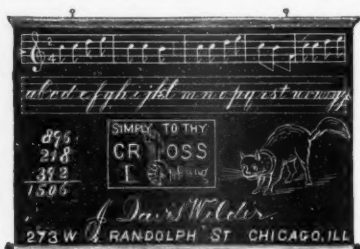 2
4
abcdefghijkl mnopqrstuvwxyz
896
218
392
1506
SIMPLY TO THY
CROSS
I Cling
J. Davis Wilder.
273 W RANDOLPH ST CHICAGO, ILL